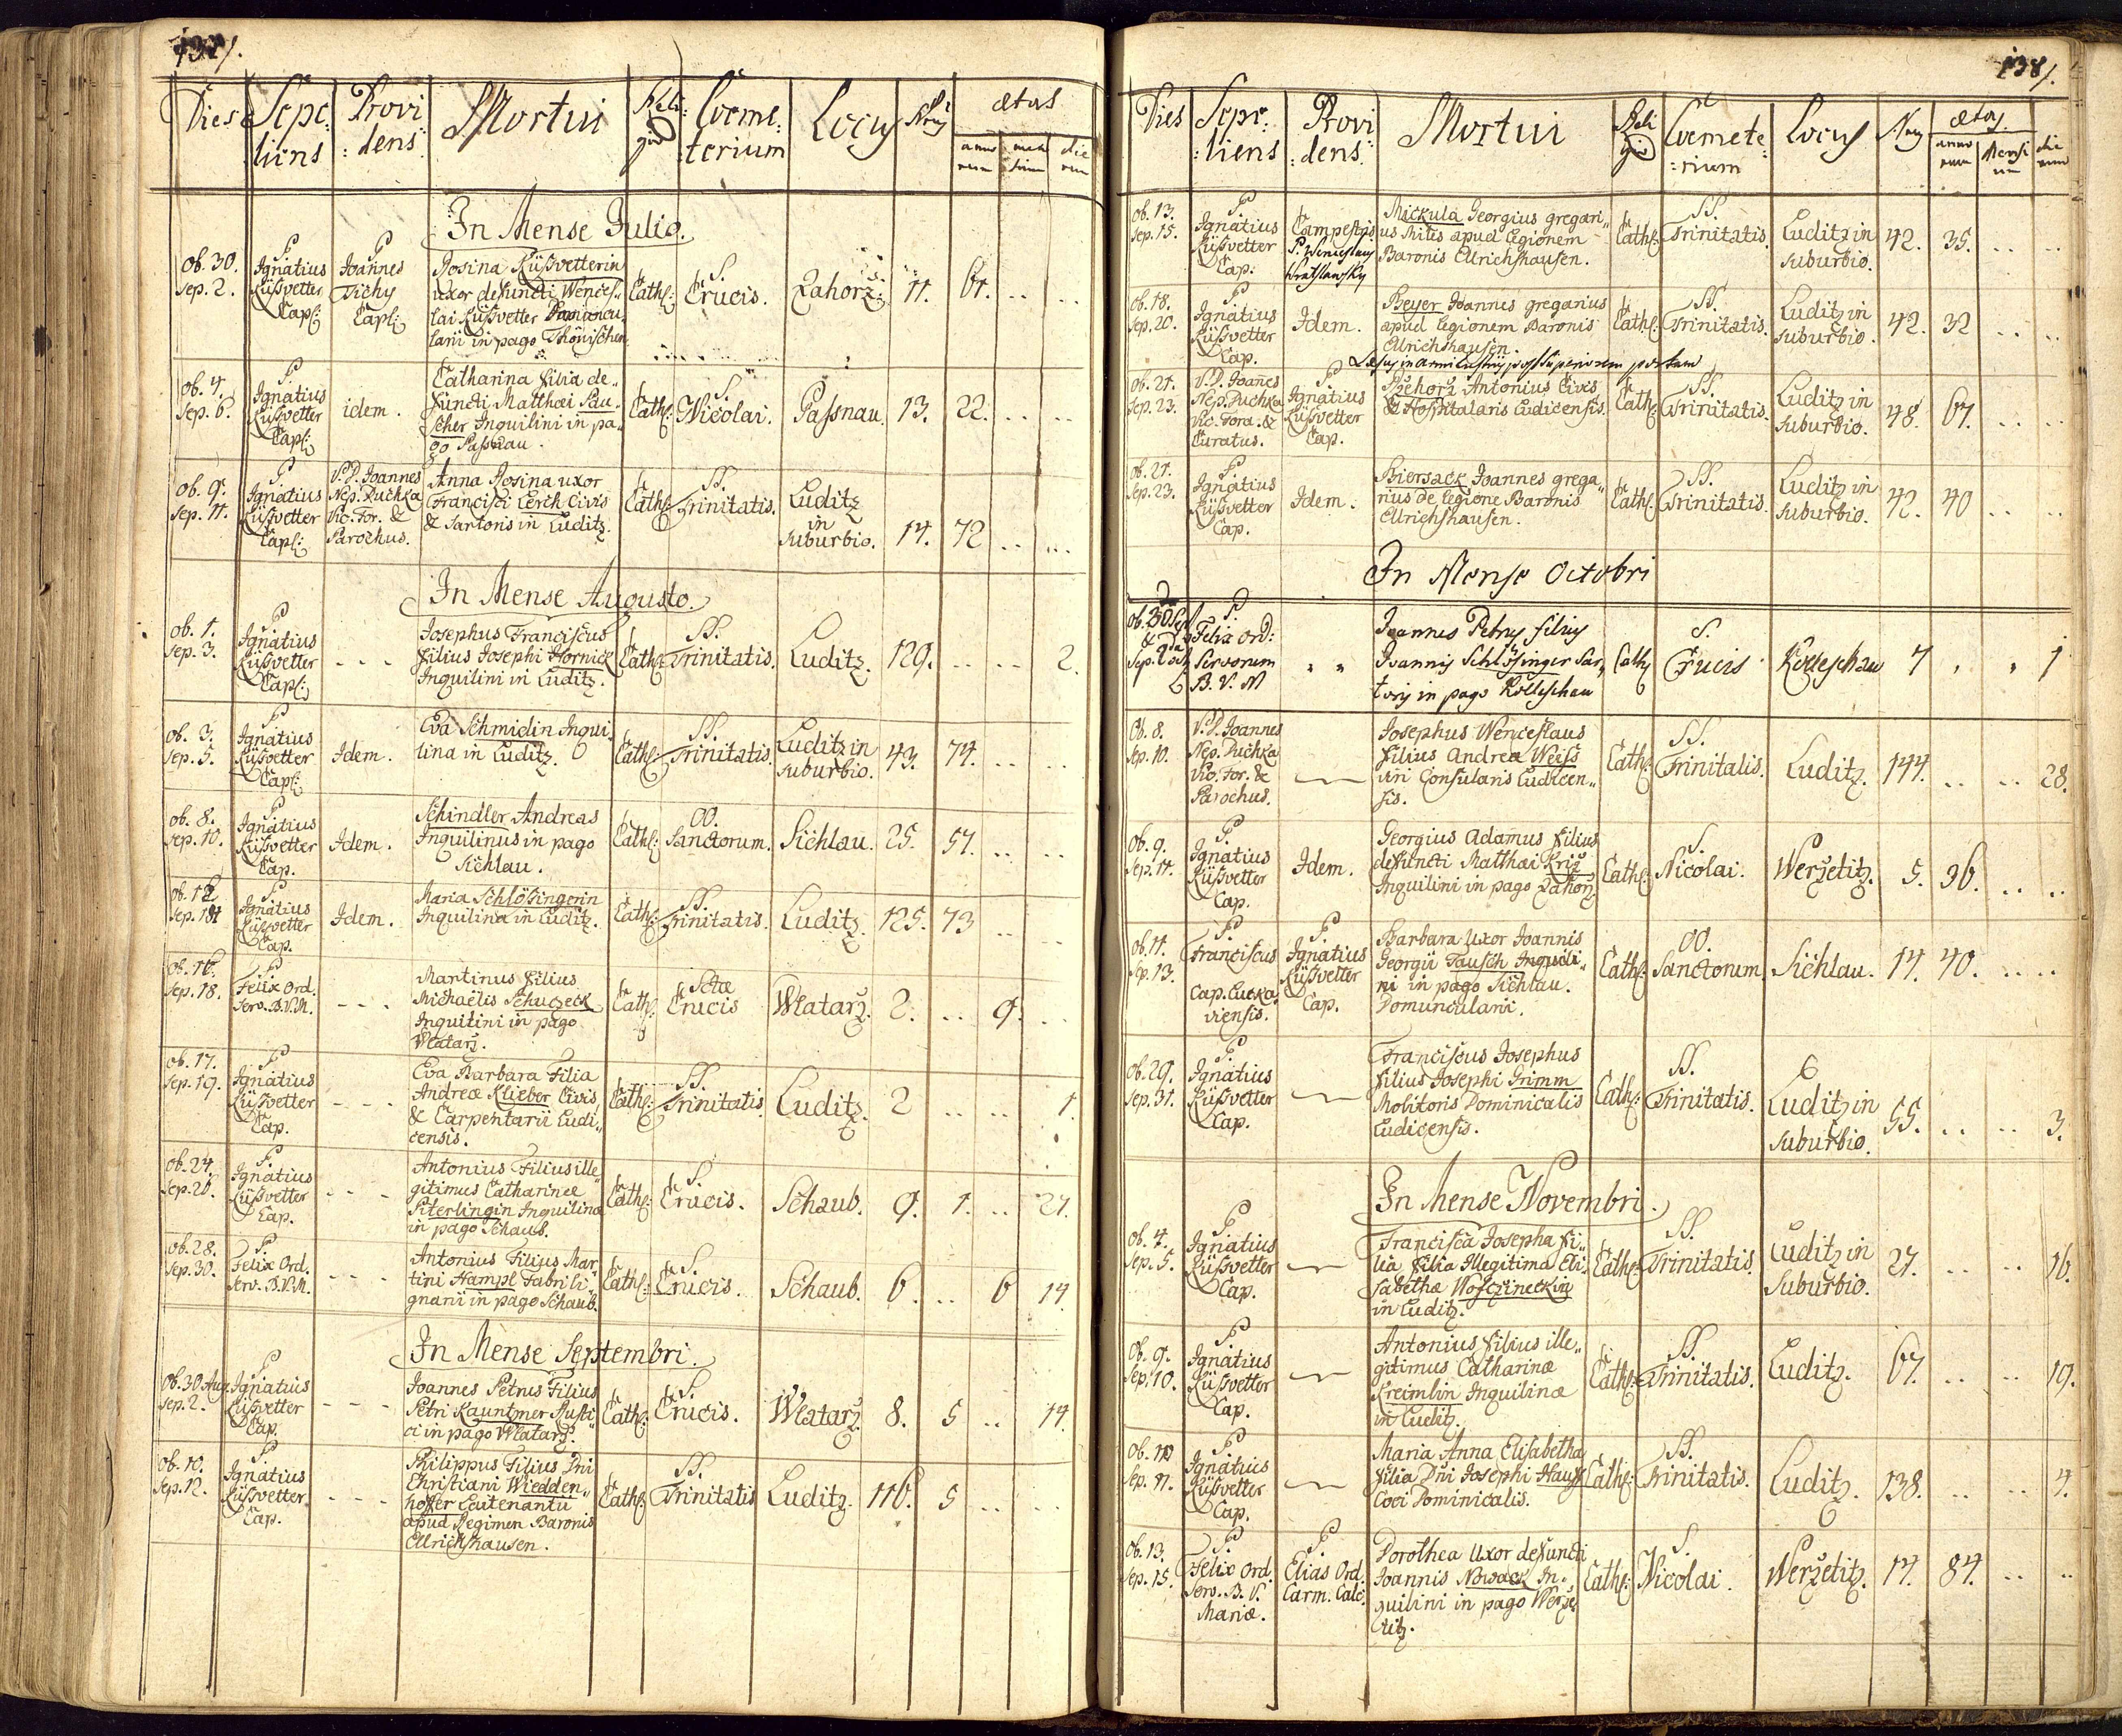 137/.
Dies
Sepe:
:liens
Provi
:dens:
Mortui
Reli:
gio
Coeme:
:terium
Locus
Nrus
ætas
anno
rum
men
sium
die
rum
In Mense Julio.
ob. 30.
sep. 2.
P.
Ignatius
Küßvetter
Capl:
P
Joannes
Tichy
Capl:
Rosina Küßvetterin
uxor defuncti Wences„
lai Küßvetter
larii in pago Thönischen
Cath:
S.
Crucis.
Zahorz:
11.
61.
ob. 4.
sep. 6.
P.
Ignatius
Küßvetter
Capl:
idem.
Catharina filia de„
functi Matthæi Pau„
scher Inquilini in pa„
go Passnau.
Cath:
S.
Nicolai.
Passnau.
13.
22.
ob. 9.
sep. 11.
P
Ignatius
Küßvetter
Capl:
V.D. Joannes
Nep. Puchka
Vic. For. &
Parochus.
Anna Rosina uxor
Francisci Lerch Civis
& Sartoris in Luditz.
Cath:
SS.
Trinitatis.
Luditz
in
suburbio.
14.
72
In Mense Augusto.
ob. 1.
sep. 3.
P
Ignatius
Küßvetter
Capl:
- - -
Josephus Franciscus
filius Josephi Hornick
Inquilini in Luditz.
Cath:
SS.
Trinitatis.
Luditz.
129.
2.
ob. 3.
sep. 5.
P
Ignatius
Küßvetter
Capl:
Idem.
Eva Schmidin Inqui„
lina in Luditz.
Cath:
SS.
Trinitatis.
Luditz in
suburbio.
43.
74.
ob. 8.
sep. 10.
P
Ignatius
Küßvetter
Cap.
Idem.
Schindler Andreas
Inquilinus in pago
Sichlau.
Cath:
OO.
Sanctorum.
Sichlau.
25.
57.
P
Ignatius
Küßvetter
Cap.
Idem.
Maria Schlösingerin
Inquilina in Luditz.
Cath:
SS.
Trinitatis.
Luditz.
125.
73
ob. 16.
sep. 18.
P
Felix Ord.
Serv. B.V.M.
- - -
Martinus filius
Michaëlis Schuczeck
Inquilini in pago
Wlatarz.
Cath:
Sctæ
Crucis
Wlatarz.
2.
9.
ob. 17.
sep. 19.
P
Ignatius
Küßvetter
Cap.
- - -
Eva Barbara Filia
Andreæ Klieber Civis
& Carpentarii Ludi„
censis.
Cath:
SS.
Trinitatis.
Luditz.
2
1.
ob. 24.
sep. 26.
P.
Ignatius
Küßvetter
Cap.
- - -
Antonius Filius ille
gitimus Catharinæ
Piterlingin Inquilinæ
in pago Schaub.
Cath:
S.
Crucis.
Schaub.
9.
1.
21.
ob. 28.
sep. 30.
P.
Felix Ord.
Serv. B.V.M.
- - -
Antonius Filius Mar„
tini Hampl Fabri li„
gnarii in pago Schaub.
Cath:
S.
Crucis.
Schaub.
6.
6
14.
In Mense Septembri.
ob. 30 Aug.
sep. 2.
P
Ignatius
Küßvetter
Cap.
- - -
Joannes Petrus Filius
Petri Kauntzner Rusti„
ci in pago Wlatarz.
Cath:
S.
Crucis.
Wlatarz.
8.
5
14.
ob. 10.
sep. 12.
P
Ignatius
Küßvetter
Cap.
- - -
Philippus Filius Dni
Christiani Wiedden„
hoffer Leitenantu
apud Regimen Baronis
Ellrichshausen.
Cath:
SS.
Trinitatis
Luditz.
116.
5
138/.
Dies
Sepe:
:liens
Provi
:dens.
Mortui
Reli
gio
Coemete:
:rium
Locus
Nrus
ætas.
anno
rum
Mensi
um
die
rum
ob. 13.
sep. 15.
P.
Ignatius
Küßvetter
Cap:
Campestris
P. Wenceslaus
Wratslawsky
Mickula Georgius gregari„
us Miles apud legionem
Baronis Ellrichshausen.
Cath:
SS.
Trinitatis.
Luditz in
suburbio.
42.
35.
ob. 18.
sep. 20.
P
Ignatius
Küßvetter
Cap.
Idem.
Beyer Joannes gregarius
apud legionem Baronis
Ellrichshausen.
Cath:
SS.
Trinitatis.
Luditz in
suburbio.
42.
32
ob. 21.
sep. 23.
V.D. Joañes
Nep. Puchka
Vic. Fora. &
Curatus.
P
Ignatius
Küßvetter
Cap.
Rzehorz Antonius Civis
& Hospitalaris Ludicensis.
Cath:
SS.
Trinitatis.
Luditz in
suburbio.
48.
67.
ob. 21.
sep. 23.
P.
Ignatius
Küßvetter
Cap.
Idem.
Biersack Joannes grega„
rius de legione Baronis
Ellrichshausen.
Cath:
SS.
Trinitatis.
Luditz in
suburbio.
42.
40
In Mense Octobri
ob. 30 Sep
P.
Felix Ord:
Servorum
B. V. M
Joannes Petrus filius
Joannis Schlösinger Sar„
toris in pago Kolleschau
Cath
S.
Crucis
Kolleschau
7
1
Ob. 8.
sep. 10.
V.D. Joannes
Nep. Puchka
Vic. For. &
Parochus.
Josephus Wenceslaus
filius Andreæ Weiss
viri Consularis Ludicen„
sis.
Cath:
SS.
Trinitatis.
Luditz.
144.
28.
ob. 9.
sep. 11.
P.
Ignatius
Küßvetter
Cap.
Idem.
Georgius Adamus filius
defuncti Matthæi Kriz
Inquilini in pago Zahorz
Cath:
S.
Nicolai.
Werzetitz.
5.
36.
ob. 11.
sep. 13.
P.
Franciscus
Cap. Lucka
viensis.
P.
Ignatius
Küßvetter
Cap.
Barbara Uxor Joannis
Georgii Tausch Inquili„
ni in pago Sichlau.
Domuncularii.
Cath:
OO.
Sanctorum
Sichlau.
14.
40.
ob. 29.
sep. 31.
P.
Ignatius
Küßvetter
Cap.
Franciscus Josephus
filius Josephi Grimm
Molitoris Dominicalis
Ludicensis.
Cath:
SS.
Trinitatis.
Luditz in
suburbio.
55.
3.
In Mense Novembri.
ob. 4.
sep. 5.
P
Ignatius
Küßvetter
Cap.
Francisca Josepha fi„
lia filia Illegitima Eli„
sabethæ Wosczineckin
in Luditz.
Cath:
SS.
Trinitatis.
Luditz in
suburbio.
27.
16.
ob. 9.
sep. 10.
P.
Ignatius
Küßvetter
Cap.
Antonius filius ille„
gitimus Catharinæ
Kreimlin Inquilinæ
in Luditz.
Cath:
SS.
Trinitatis.
Luditz.
67.
19.
sep. 11.
P.
Ignatius
Küßvetter
Cap.
Maria Anna Elisabetha
filia Dñi Josephi Hauss
Coci Dominicalis.
Cath:
SS.
Trinitatis.
Luditz.
138.
4.
ob. 13.
sep. 15.
P.
Felix Ord.
Serv. B. V.
Mariæ.
P
Elias Ord.
Carm. Calc.
Dorothea Uxor defuncti
Joannis Nowack In„
quilini in pago Werze
titz.
Cath:
S.
Nicolai.
Werzetitz.
14.
84.